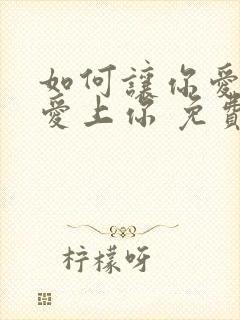 如何讓你愛
愛上你 免費
柠檬呀